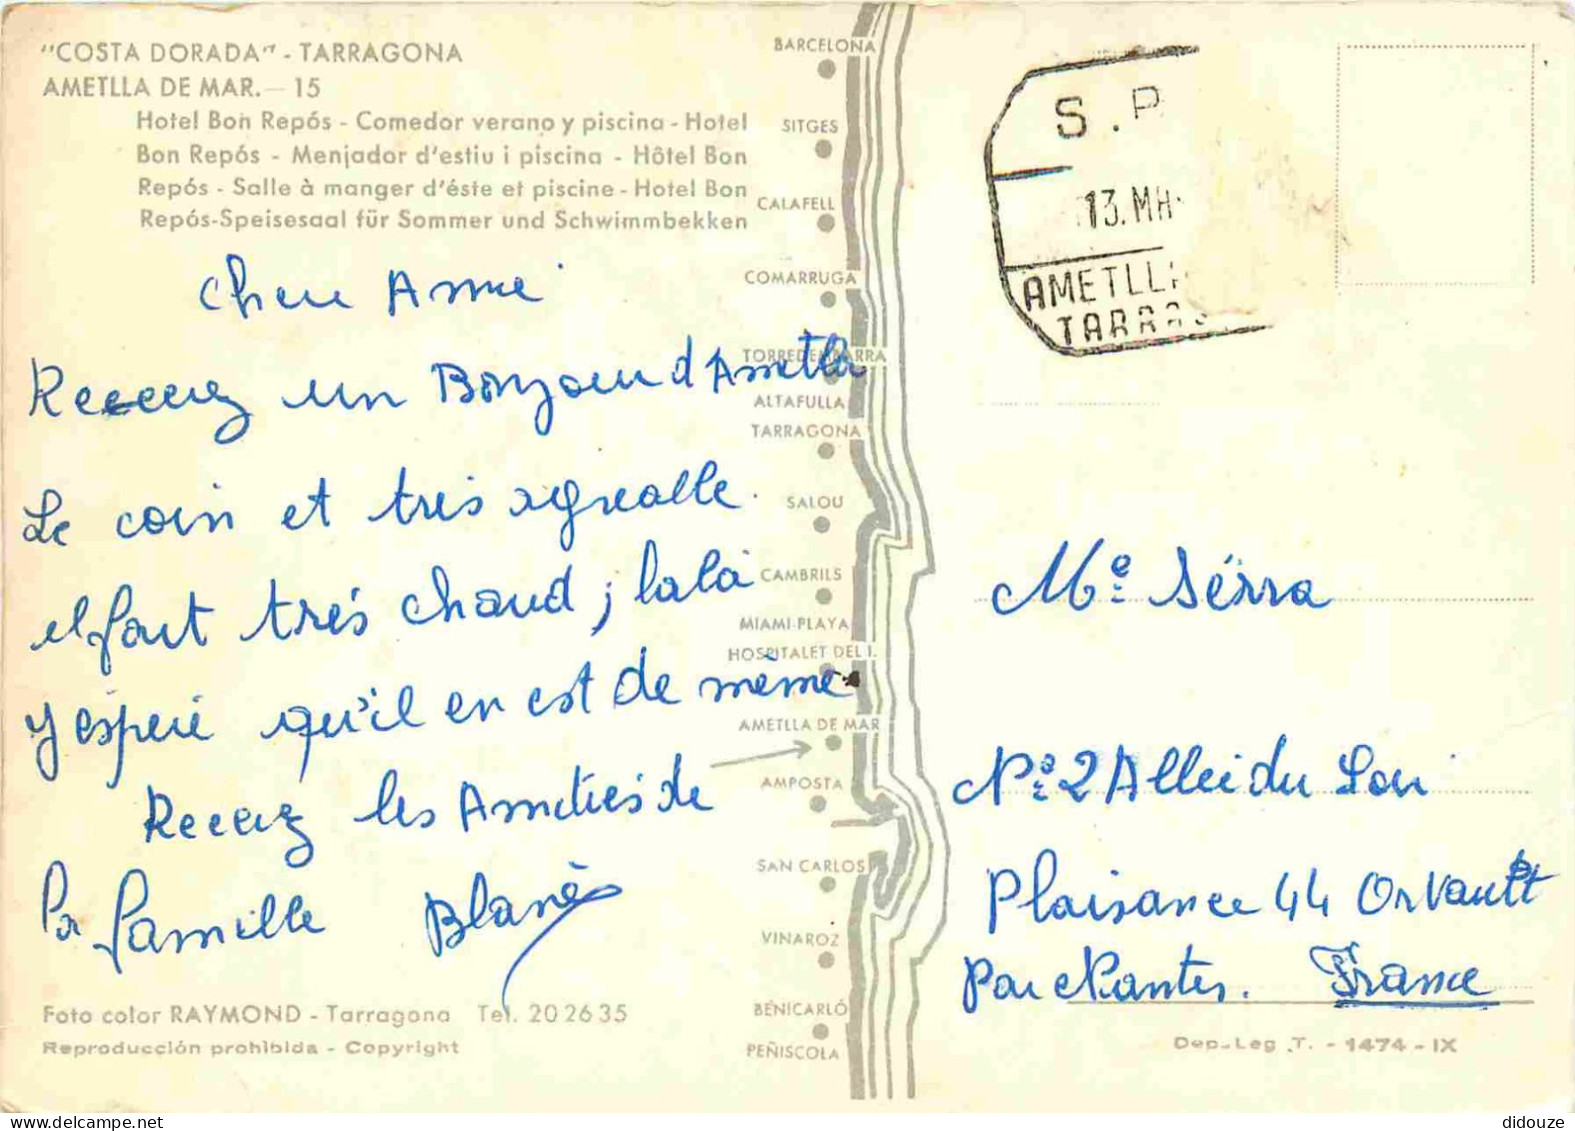 "COSTA DORADA" - TARRAGONA
AMETLLA DE MAR. — 15
Hotel Bon Repós - Comedor verano y piscina - Hotel
Bon Repós - Menjador d'estiu i piscina - Hôtel Bon
Repós - Salle à manger d'éste et piscine - Hotel Bon
Repós-Speisesaal für Sommer und Schwimmbekken
Cher Amie
Recevez un Bonjour d Ametlla
Le coin et très agréable.
il fait très chaud ; la là
J espère qu'il en est de même
Recevez les Amitiés de
la famille Blanès
Foto color RAYMOND - Tarragona Tel. 20 26 35
Reproducción prohibida - Copyright
BARCELONA
SITGES
CALAFELL
COMARRUGA
TORREDEMBARRA
ALTAFULLA
TARRAGONA
SALOU
CAMBRILS
MIAMI-PLAYA
HOSPITALET DEL I.
AMETLLA DE MAR
AMPOSTA
SAN CARLOS
VINAROZ
BENICARLÓ
PEÑISCOLA
S. P
13. MA
AMETLLA
TARRAG
Me Sérra
No 2 Allei du Loi
Plaisance 44 Orvault
Par Nantes. France
Dep-Leg .T. - 1474 - IX
didouze